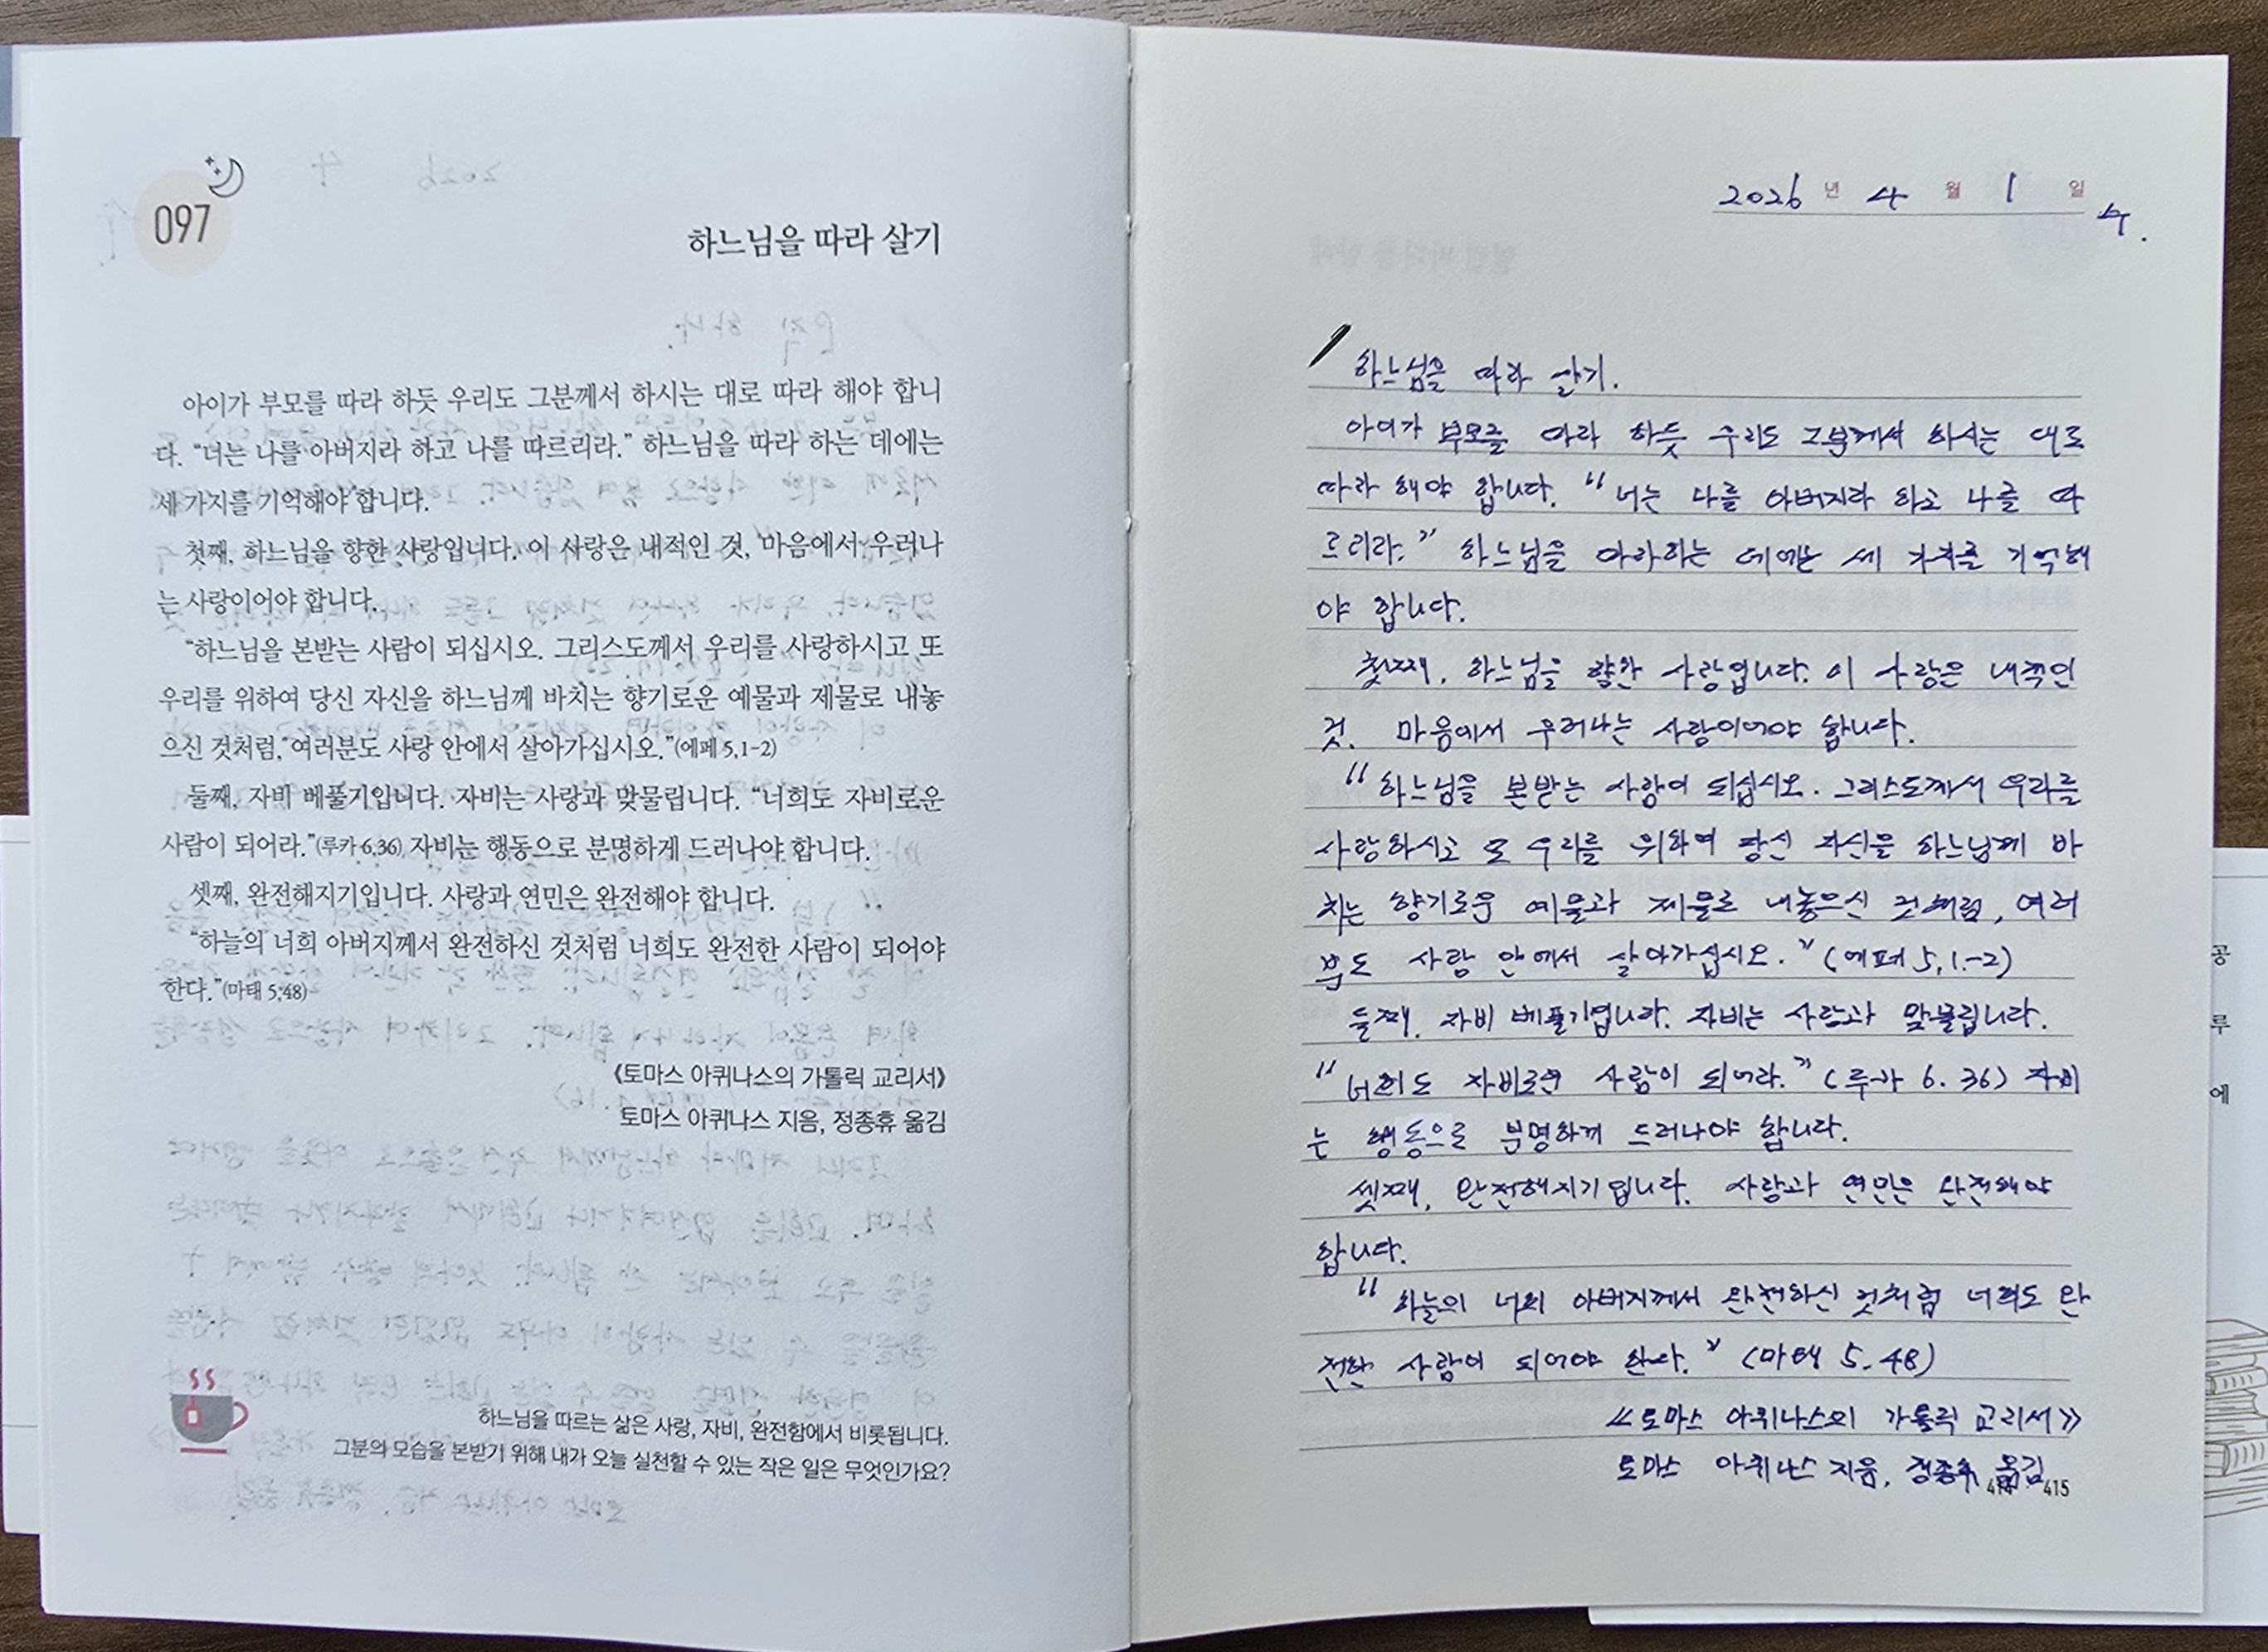 097
하느님을 따라 살기
아이가 부모를 따라 하듯 우리도 그분께서 하시는 대로 따라 해야 합니
다. “너는 나를 아버지라 하고 나를 따르리라.” 하느님을 따라 하는 데에는
세 가지를 기억해야 합니다.
첫째, 하느님을 향한 사랑입니다. 이 사랑은 내적인 것, 마음에서 우러나
는 사랑이어야 합니다.
“하느님을 본받는 사람이 되십시오. 그리스도께서 우리를 사랑하시고 또
우리를 위하여 당신 자신을 하느님께 바치는 향기로운 예물과 제물로 내놓
으신 것처럼, 여러분도 사랑 안에서 살아가십시오.”(에페 5,1-2)
둘째, 자비 베풀기입니다. 자비는 사랑과 맞물립니다. “너희도 자비로운
사람이 되어라.”(루카 6,36) 자비는 행동으로 분명하게 드러나야 합니다.
셋째, 완전해지기입니다. 사랑과 연민은 완전해야 합니다.
“하늘의 너희 아버지께서 완전하신 것처럼 너희도 완전한 사람이 되어야
한다.”(마태 5,48)
《토마스 아퀴나스의 가톨릭 교리서》
토마스 아퀴나스 지음, 정종휴 옮김
하느님을 따르는 삶은 사랑, 자비, 완전함에서 비롯됩니다.
그분의 모습을 본받기 위해 내가 오늘 실천할 수 있는 작은 일은 무엇인가요?
2026 년 4 월 1 일
수.
하느님을 따라 살기.
아이가 부모를 따라 하듯 우리도 그분께서 하시는 대로
따라 해야 합니다. “너는 나를 아버지라 하고 나를 따
르리라.” 하느님을 따라하는 데에는 세 가지를 기억해
야 합니다.
첫째, 하느님을 향한 사랑입니다. 이 사랑은 내적인
것. 마음에서 우러나는 사랑이어야 합니다.
“하느님을 본받는 사람이 되십시오. 그리스도께서 우리를
사랑하시고 또 우리를 위하여 당신 자신을 하느님께 바
치는 향기로운 예물과 제물로 내놓으신 것처럼, 여러
분도 사랑 안에서 살아가십시오.”(에페 5,1.-2)
둘째, 자비 베풀기입니다. 자비는 사랑과 맞물립니다.
“너희도 자비로운 사람이 되어라.”(루카 6. 36) 자비
는 행동으로 분명하게 드러나야 합니다.
셋째, 완전해지기입니다. 사랑과 연민은 완전해야
합니다.
“하늘의 너희 아버지께서 완전하신 것처럼 너희도 완
전한 사람이 되어야 한다.”(마태 5.48)
《토마스 아퀴나스의 가톨릭 교리서》
토마스 아퀴나스 지음, 정종휴 옮김
415
공
루
에